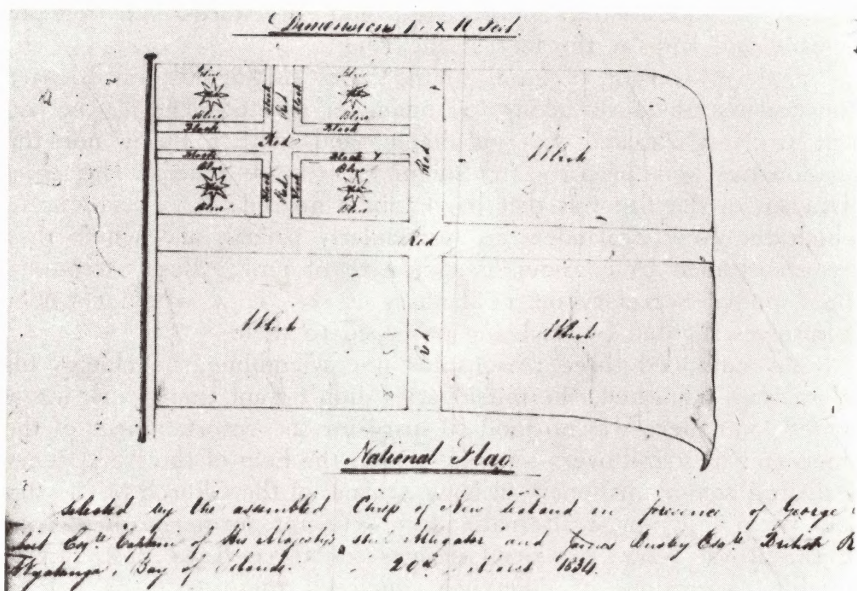 Dimensions × 11 Feet
Blue Black Red Black Blue
Blue Blue
Black Black
Red
Black Black
Blue Blue
Black Red Black
Blue Blue
Red
White
Red
White White
Red
National Flag.
Selected by the assembled Chiefs of New Zealand in presence of George
Esqre Captain of His Majesty's Alligator and James Busby Esqre British R
Bay of Islands. 20th March 1834.